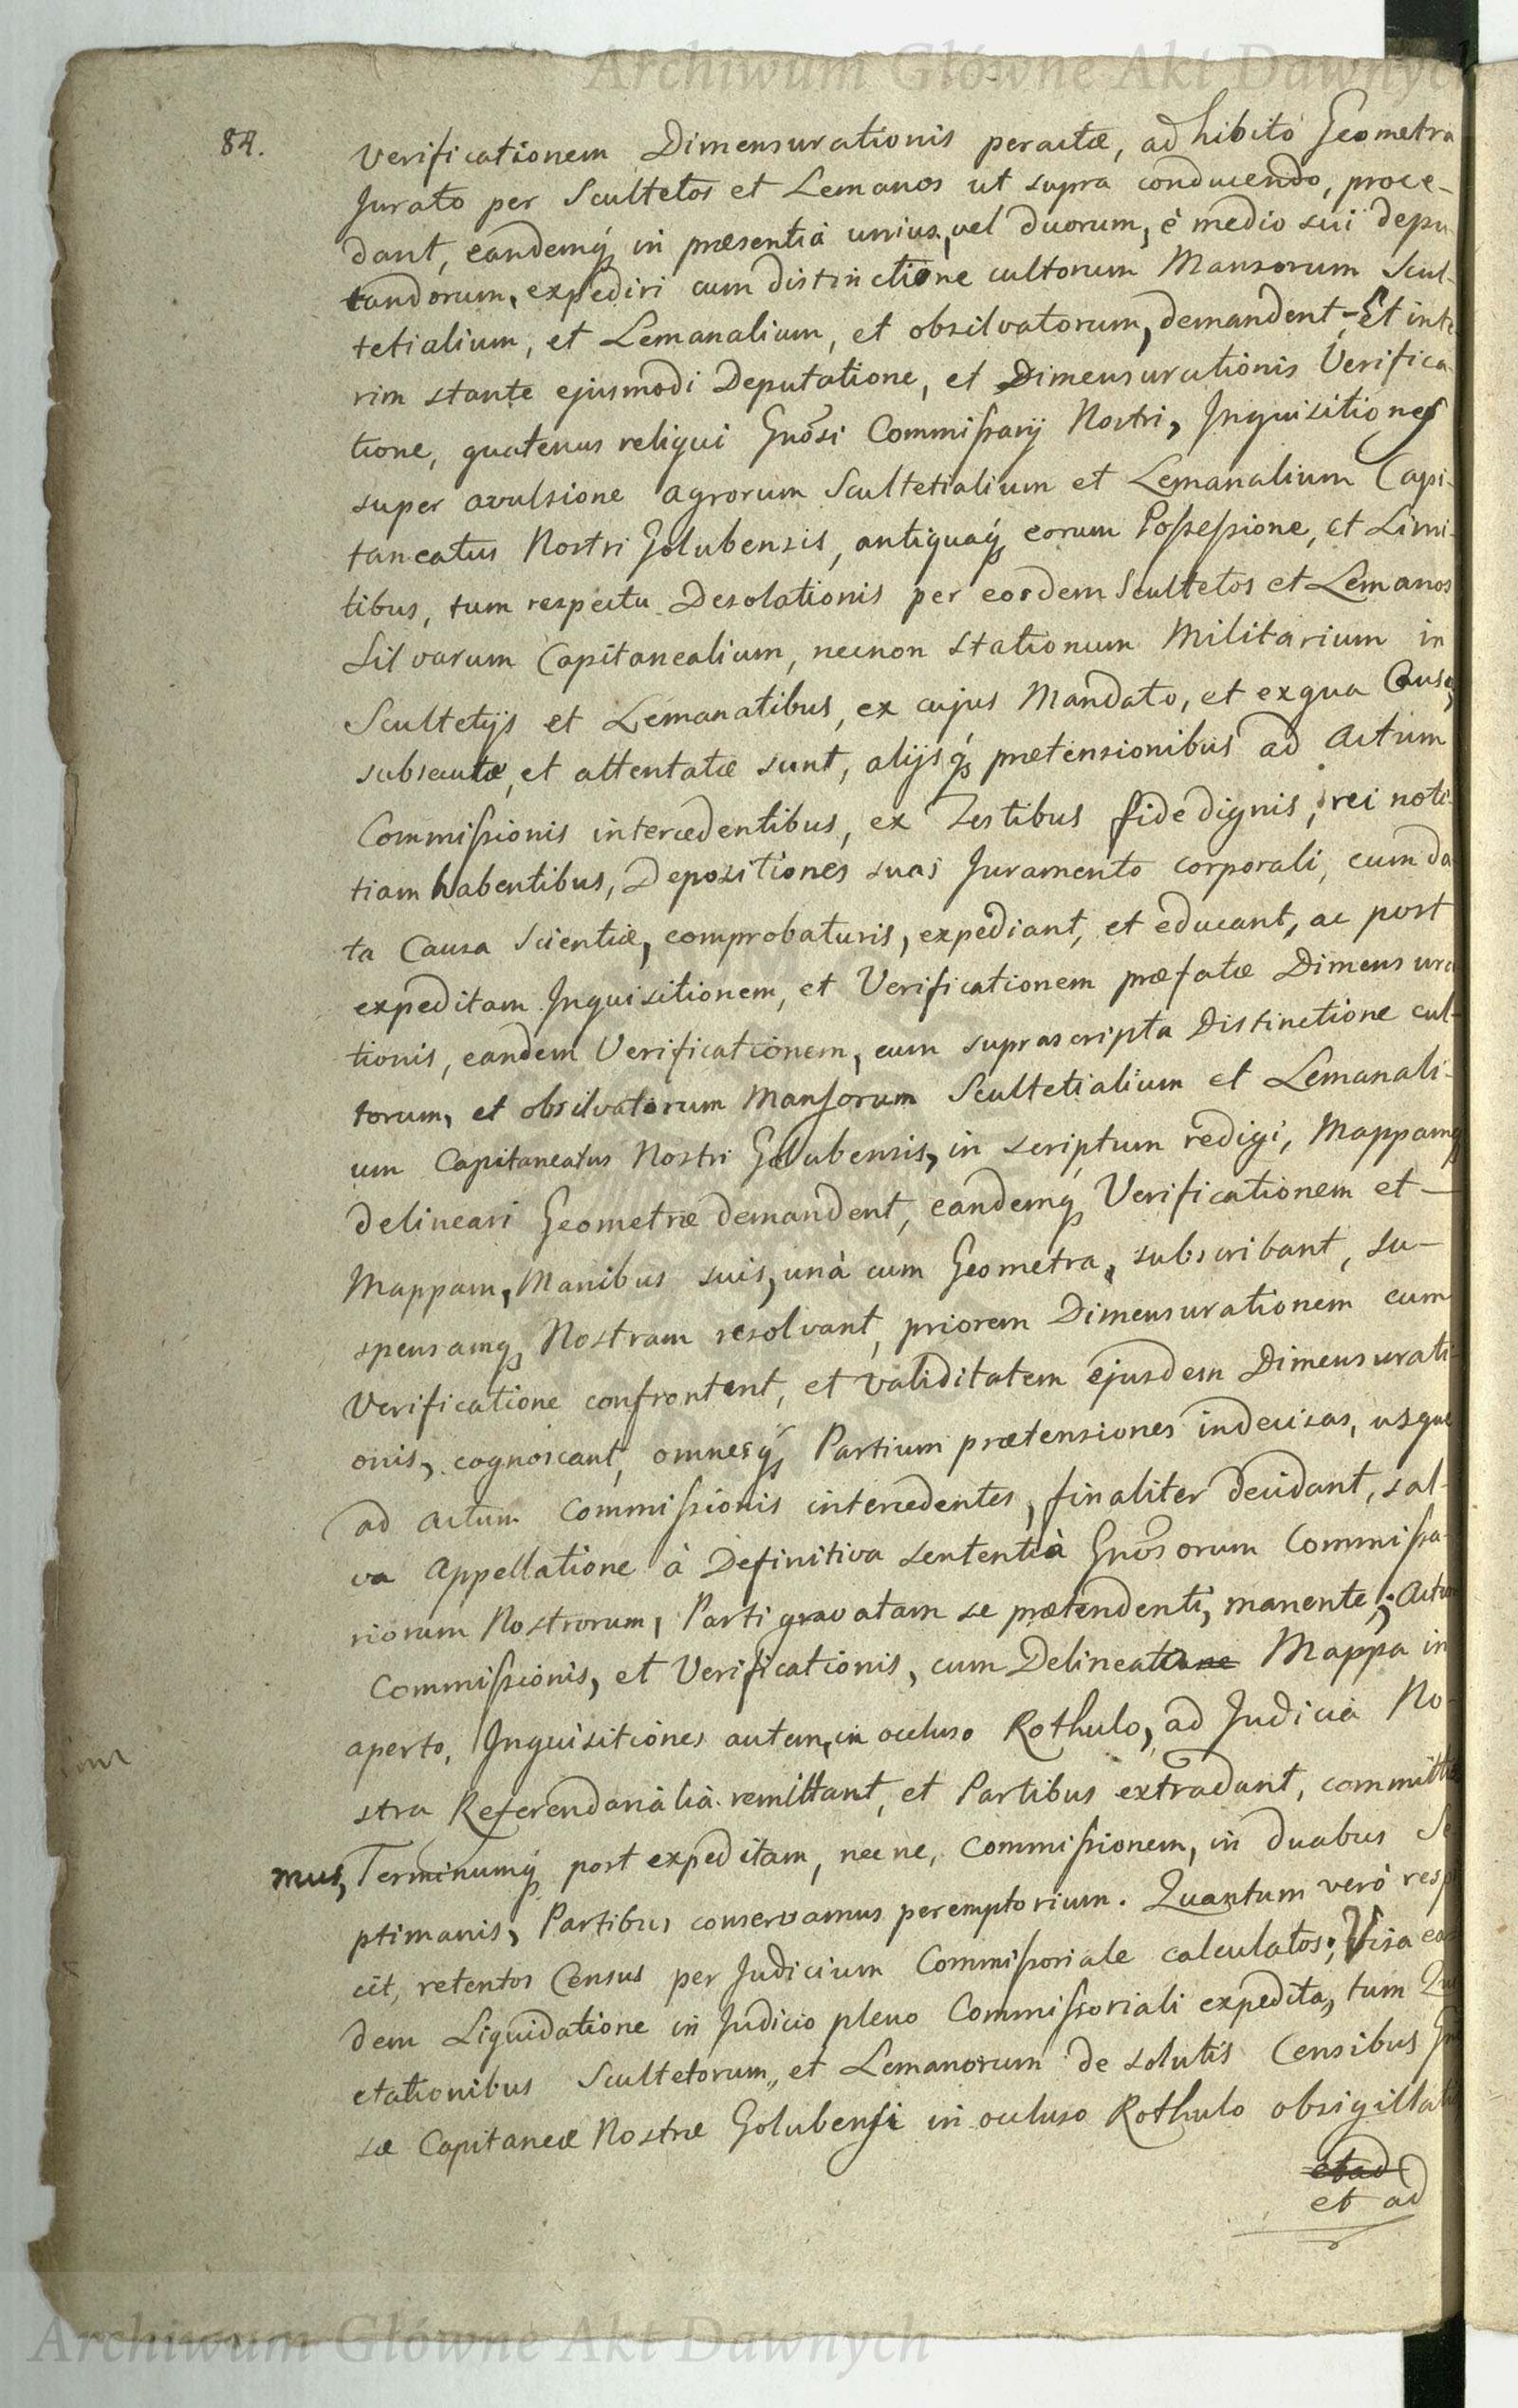 Archiwum Główne Akt Dawnych
84.
Verificationem Dimensurationis peractæ, adhibito Geometra
Jurato per Scultetos et Lemanos ut supra conducendo, proce-
dant, eandemq́ in præsentiâ unius, vel duorum, è medio sui depu-
tandorum, expediri cum distinctione cultorum Mansorum Scul-
tetialium, et Lemanalium, et obsilvatorum, demandent - Et inte
rim stante ejusmodi Deputatione, et Dimensurationis Verifica-
tione, quatenus reliqui Gnõsi Commißarij Nostri, Inquisitiones
super avulsione agrorum Scultetialium et Lemanalium Capi-
taneatus Nostri Golubensis, antiquaq́ eorum Poßeßione, et Limi-
tibus, tum respectu Desolationis per eosdem Scultetos et Lemanos
Silvarum Capitanealium, necnon stationum Militarium in
Scultetijs et Lemanatibus, ex cujus Mandato, et ex qua Causa,
subsecutæ, et attentatæ sunt, alijsq́ prætensionibus ad Actum
Commißionis intercedentibus, ex Testibus fide dignis, rei noti-
tiam habentibus, Depositiones suas Juramento corporali, cum da-
ta Causa Scientiæ, comprobaturis, expediant, et educant, ac post
expeditam Inquisitionem, et Verificationem præfatæ Dimensura
tionis, eandem Verificationem, cum suprascripta Distinctione cul-
torum, et obsilvatorum Mansorum Scultetialium et Lemanali-
um Capitaneatus Nostri Golubensis, in scriptum redigi, Mappamq
delineari Geometræ demandent, eandemq Verificationem et -
Mappam, Manibus suis, unà cum Geometra, subscribant, su-
spensamq Nostram resolvant, priorem Dimensurationem cum
Verificatione confrontent, et validitatem ejusdem Dimensurati-
onis, cognoscant, omnesq́ Partium prætensiones indecisas, usque
ad Actum Commißionis intercedentes, finaliter decidant, sal-
va Appellatione à Definitiva sententiâ Gnõsorum Commißa-
riorum Nostrorum, Parti gravatam se prætendenti, manente; Actum
Commißionis, et Verificationis, cum Delineatione Mappa in
aperto, Inquisitiones autem, in occluso Rothulo, ad Judicia No-
stra Referendarialia remittant, et Partibus extradant, committi
mus, Terminumq́ post expeditam, necne, Commißionem, in duabus Se
ptimanis, Partibus conservamus peremptorium. Quantum verò resp
cit, retentos Census per Judicium Commißoriale calculatos; Visa ea
dem Liquidatione in Judicio pleno Commißoriali expedita, tum Qui
etationibus Scultetorum, et Lemanorum de solutis Censibus Gn
sæ Capitaneæ Nostræ Golubensi in occluso Rothulo obsigillati
et ad
et ad
Archiwum Główne Akt Dawnych